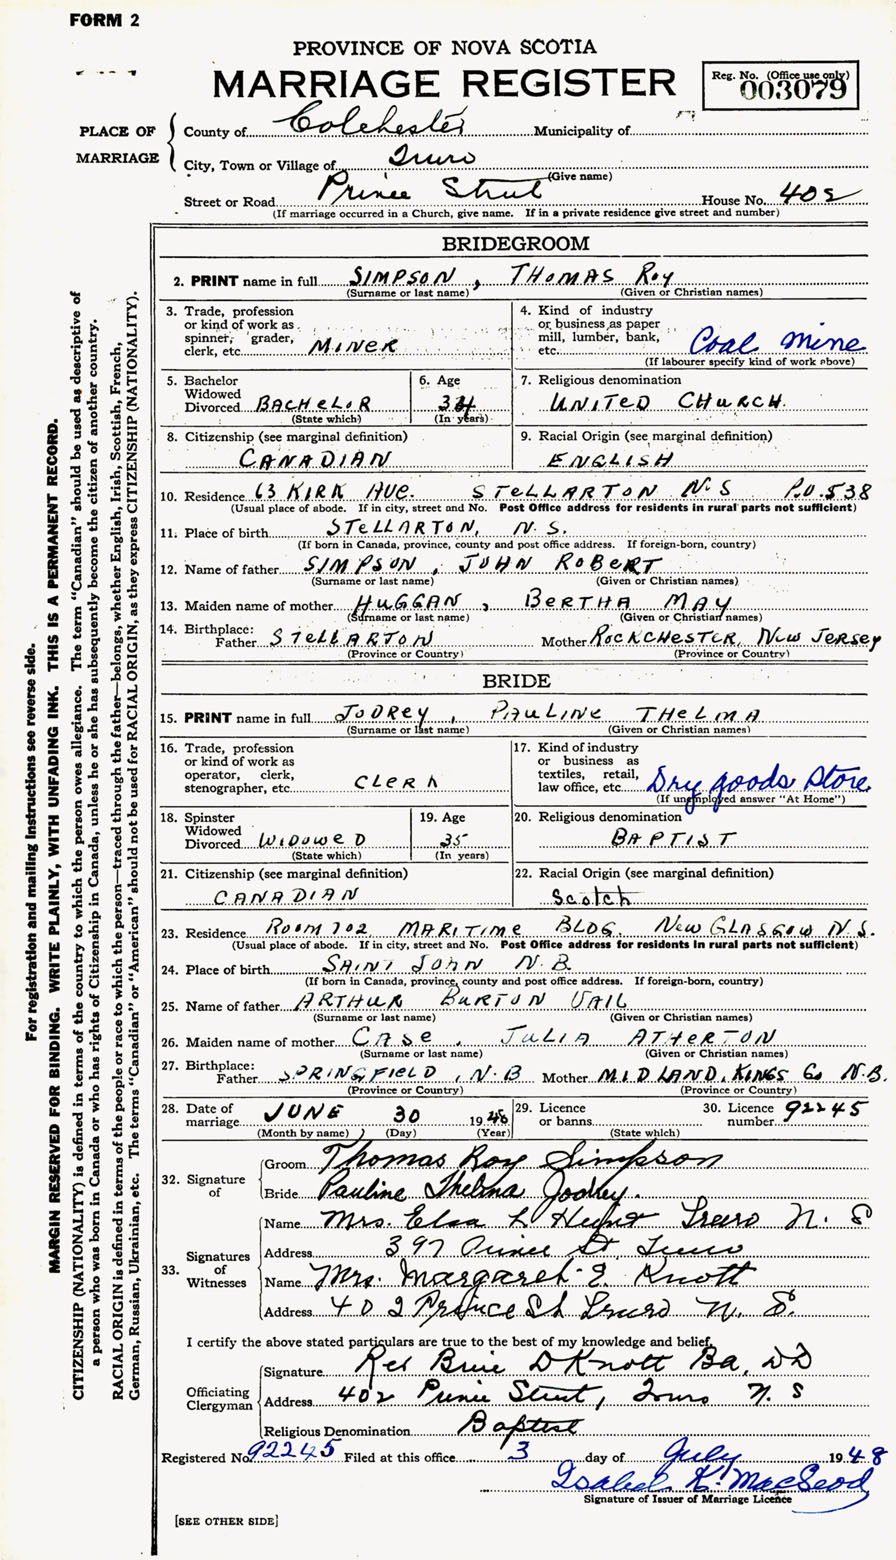 FORM 2
PROVINCE OF NOVA SCOTIA
MARRIAGE REGISTER
Reg. No. (Office use only)
003079
PLACE OF MARRIAGE
County of Colchester Municipality of
City, Town or Village of Truro
(Give name)
Street or Road Prince Street House No. 402
(If marriage occurred in a Church, give name. If in a private residence give street and number)
BRIDEGROOM
2. PRINT name in full SIMPSON, THOMAS ROY
(Surname or last name) (Given or Christian names)
3. Trade, profession
or kind of work as
spinner, grader,
clerk, etc. MINER
4. Kind of industry
or business as paper
mill, lumber, bank,
etc. Coal Mine
(If labourer specify kind of work above)
5. Bachelor
Widowed
Divorced BACHELOR
(State which)
6. Age
34
(In years)
7. Religious denomination
UNITED CHURCH.
8. Citizenship (see marginal definition)
CANADIAN
9. Racial Origin (see marginal definition)
ENGLISH
10. Residence 63 KIRK AVE. STELLARTON N.S P.O. 538
(Usual place of abode. If in city, street and No. Post Office address for residents in rural parts not sufficient)
11. Place of birth STELLARTON, N.S.
(If born in Canada, province, county and post office address. If foreign-born, country)
12. Name of father SIMPSON, JOHN ROBERT
(Surname or last name) (Given or Christian names)
13. Maiden name of mother HUGGAN, BERTHA MAY
(Surname or last name) (Given or Christian names)
14. Birthplace:
Father STELLARTON Mother ROCKCHESTER, NEW JERSEY
(Province or Country) (Province or Country)
BRIDE
15. PRINT name in full JODREY, PAULINE THELMA
(Surname or last name) (Given or Christian names)
16. Trade, profession
or kind of work as
operator, clerk,
stenographer, etc. CLERK
17. Kind of industry
or business as
textiles, retail,
law office, etc. Dry goods Store
(If unemployed answer "At Home")
18. Spinster
Widowed
Divorced WIDOWED
(State which)
19. Age
35
(In years)
20. Religious denomination
BAPTIST
21. Citizenship (see marginal definition)
CANADIAN
22. Racial Origin (see marginal definition)
Scotch
23. Residence ROOM 702 MARITIME BLDG. NEW GLASGOW N.S.
(Usual place of abode. If in city, street and No. Post Office address for residents in rural parts not sufficient)
24. Place of birth SAINT JOHN N.B
(If born in Canada, province, county and post office address. If foreign-born, country)
25. Name of father ARTHUR BURTON VAIL
(Surname or last name) (Given or Christian names)
26. Maiden name of mother CASE, JULIA ATHERTON
(Surname or last name) (Given or Christian names)
27. Birthplace:
Father SPRINGFIELD, N.B Mother MIDLAND, KINGS Co N.B.
(Province or Country) (Province or Country)
28. Date of
marriage JUNE 30 1948
(Month by name) (Day) (Year)
29. Licence
or banns
(State which)
30. Licence
number 92245
32. Signature
of
Groom Thomas Roy Simpson
Bride Pauline Thelma Jodrey.
33. Signatures
of
Witnesses
Name Mrs. Elsa L Hunt Truro N. S
Address 397 Prince St, Truro
Name Mrs. Margaret J. Knott
Address 402 Prince St Truro N. S.
I certify the above stated particulars are true to the best of my knowledge and belief.
Officiating
Clergyman
Signature D Knott Ba, DD
Address 402 Prince Street, Truro N. S
Religious Denomination Baptist
Registered No. 92245 Filed at this office 3 day of July 1948
Isabel K. MacLeod
Signature of Issuer of Marriage Licence
[SEE OTHER SIDE]
For registration and mailing instructions see reverse side.
MARGIN RESERVED FOR BINDING. WRITE PLAINLY, WITH UNFADING INK. THIS IS A PERMANENT RECORD.
CITIZENSHIP (NATIONALITY) is defined in terms of the country to which the person owes allegiance. The term "Canadian" should be used as descriptive of
a person who was born in Canada or who has rights of Citizenship in Canada, unless he or she has subsequently become the citizen of another country.
RACIAL ORIGIN is defined in terms of the people or race to which the person—traced through the father—belongs, whether English, Irish, Scottish, French,
German, Russian, Ukrainian, etc. The terms "Canadian" or "American" should not be used for RACIAL ORIGIN, as they express CITIZENSHIP (NATIONALITY).